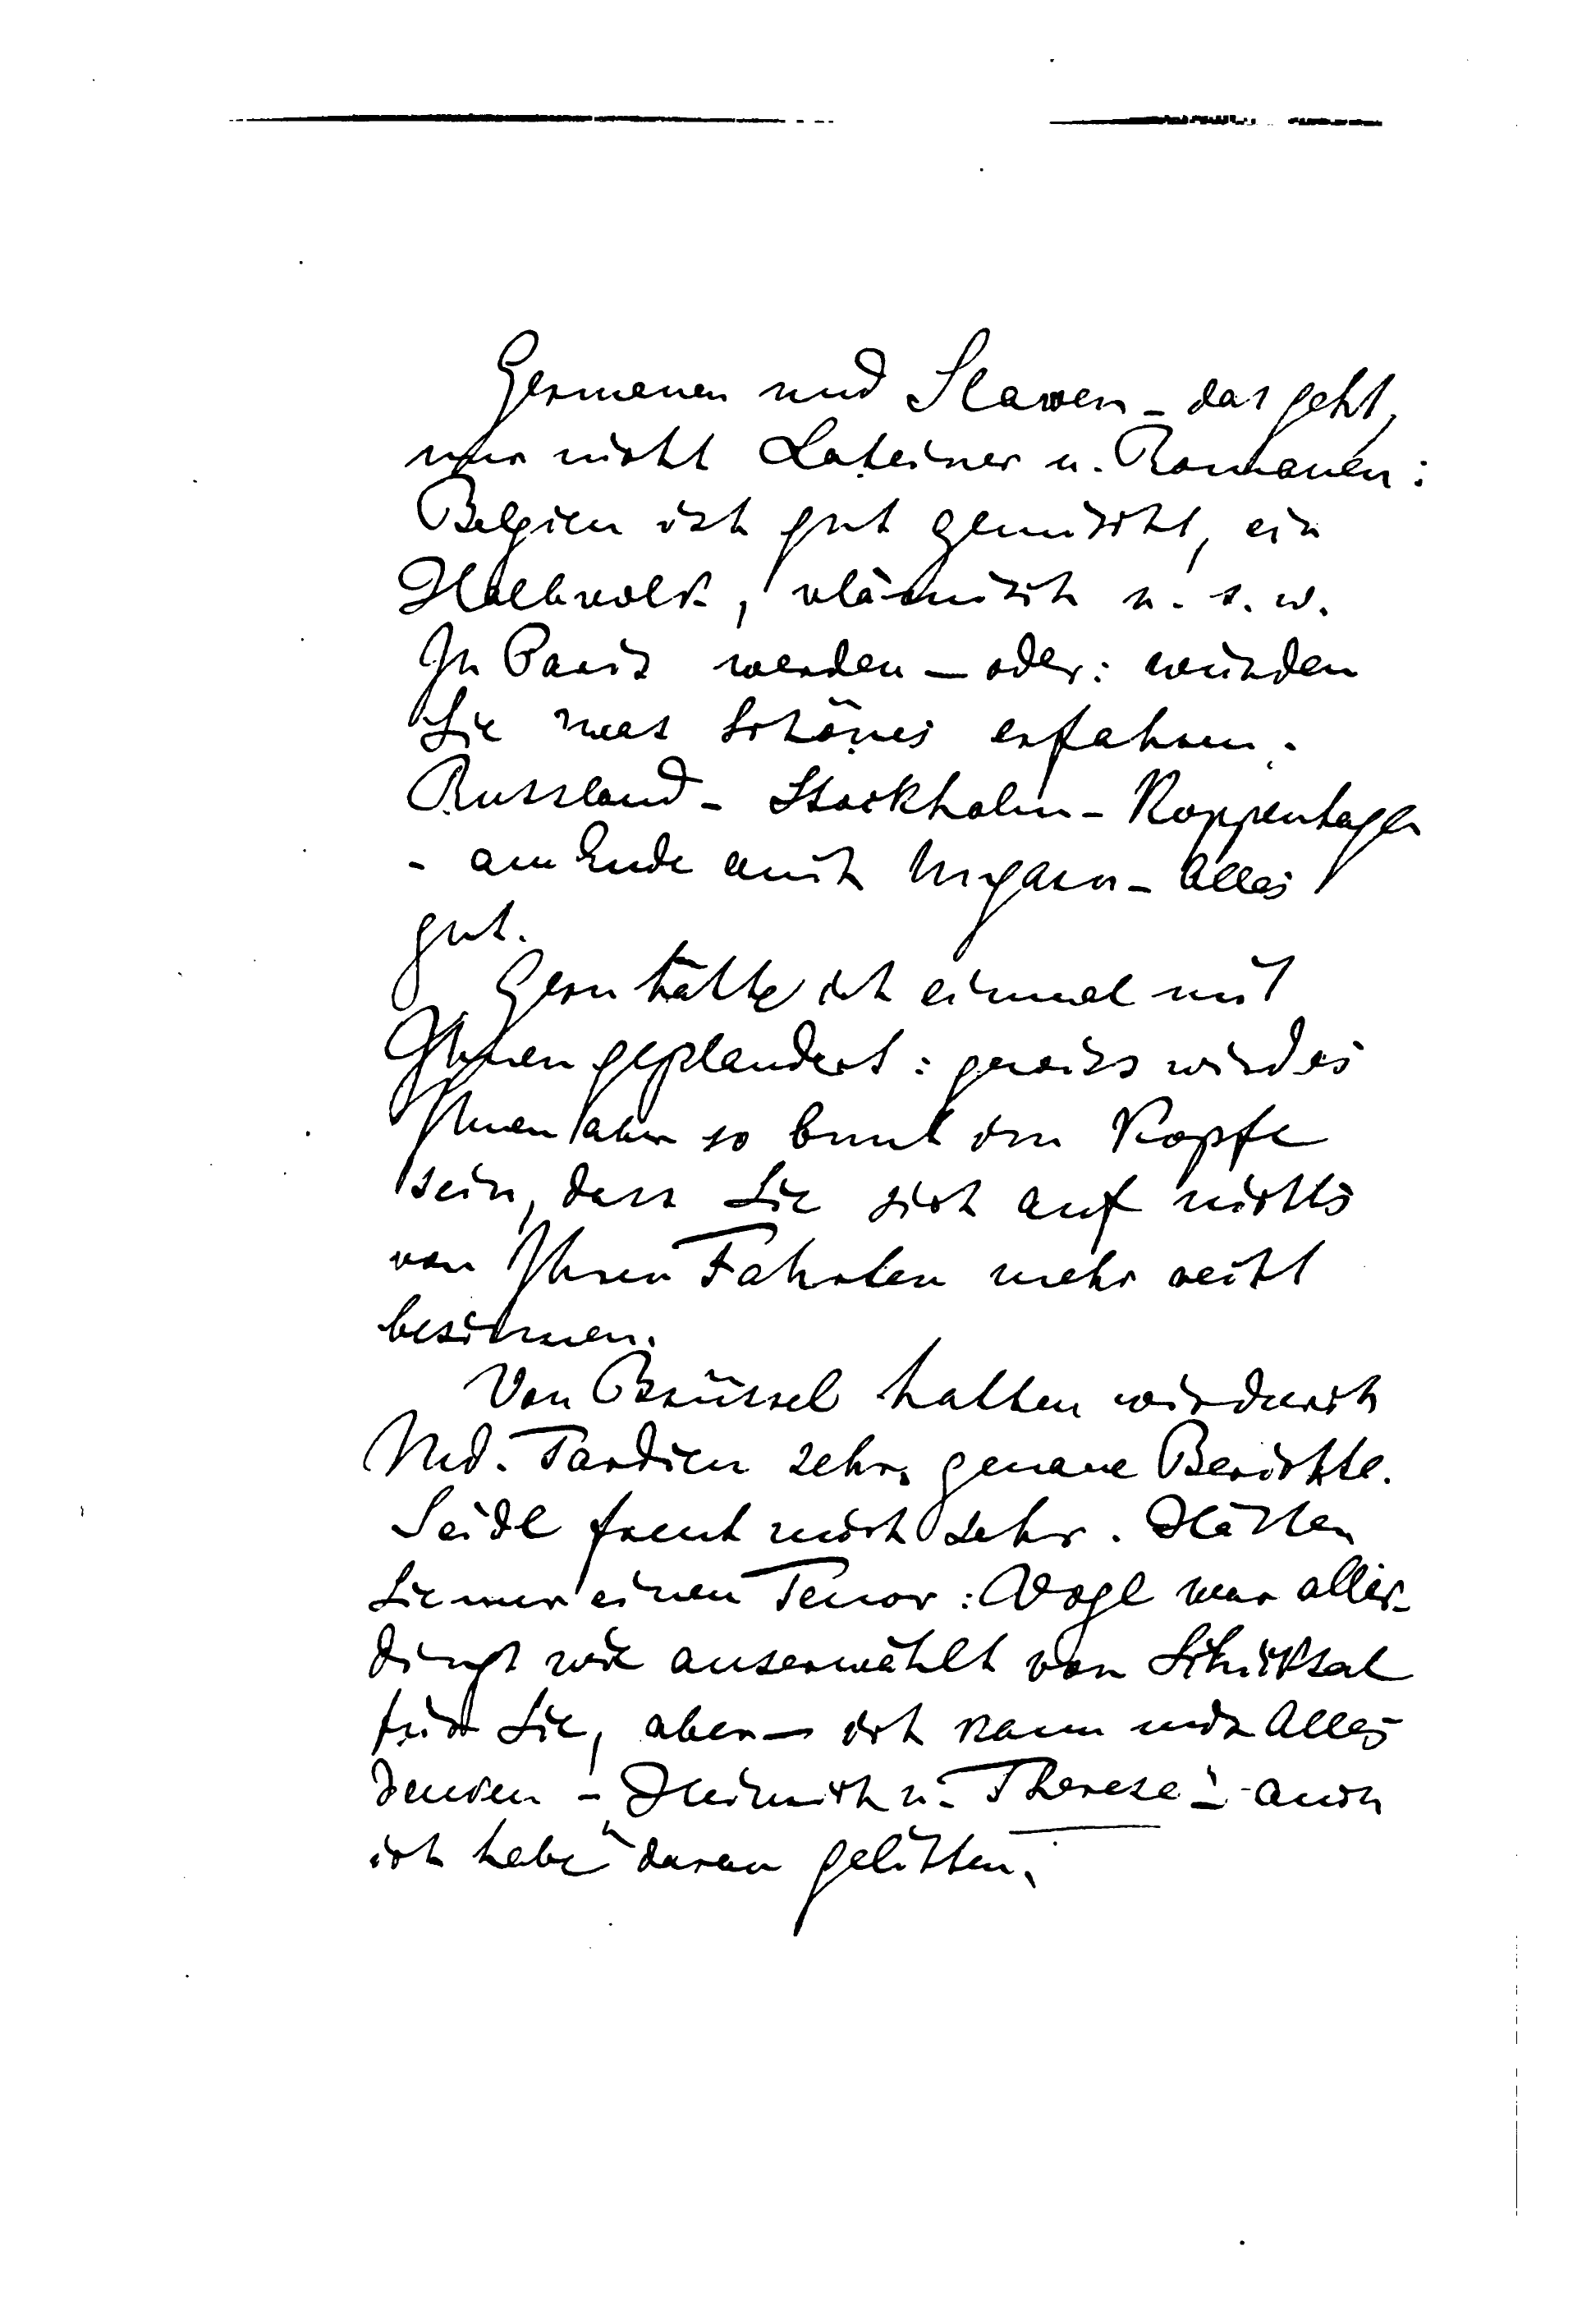 Germanen und Slawen – das geht,
nur nicht Lateiner u. Romanen:
Belgien ist gut gemischt, ein
Halbvolk, vlämisch u. s. w.
In Paris werden – oder: würden
Sie was Schönes erfahren.
Russland – Stockholm – Koppenhagen
– am Ende auch Ungarn – Alles
gut.
Gern hätte ich einmal mit
Ihnen geplaudert: gewiss wird es
Ihnen aber so bunt im Kopfe
sein, dass Sie sich auf nichts
von Ihren Fahrten mehr recht
besinnen.
Von Brüssel hatten wir durch
Md. Tardieu sehr genaue Berichte.
Seidl freut mich sehr. Hätten
Sie nur einen Tenor: Vogl war aller-
dings wie auserwählt vom Schicksal
für Sie, aber – ich kann mir Alles
denken – Heinrich u. Therese! – auch
ich habe daran gelitten.